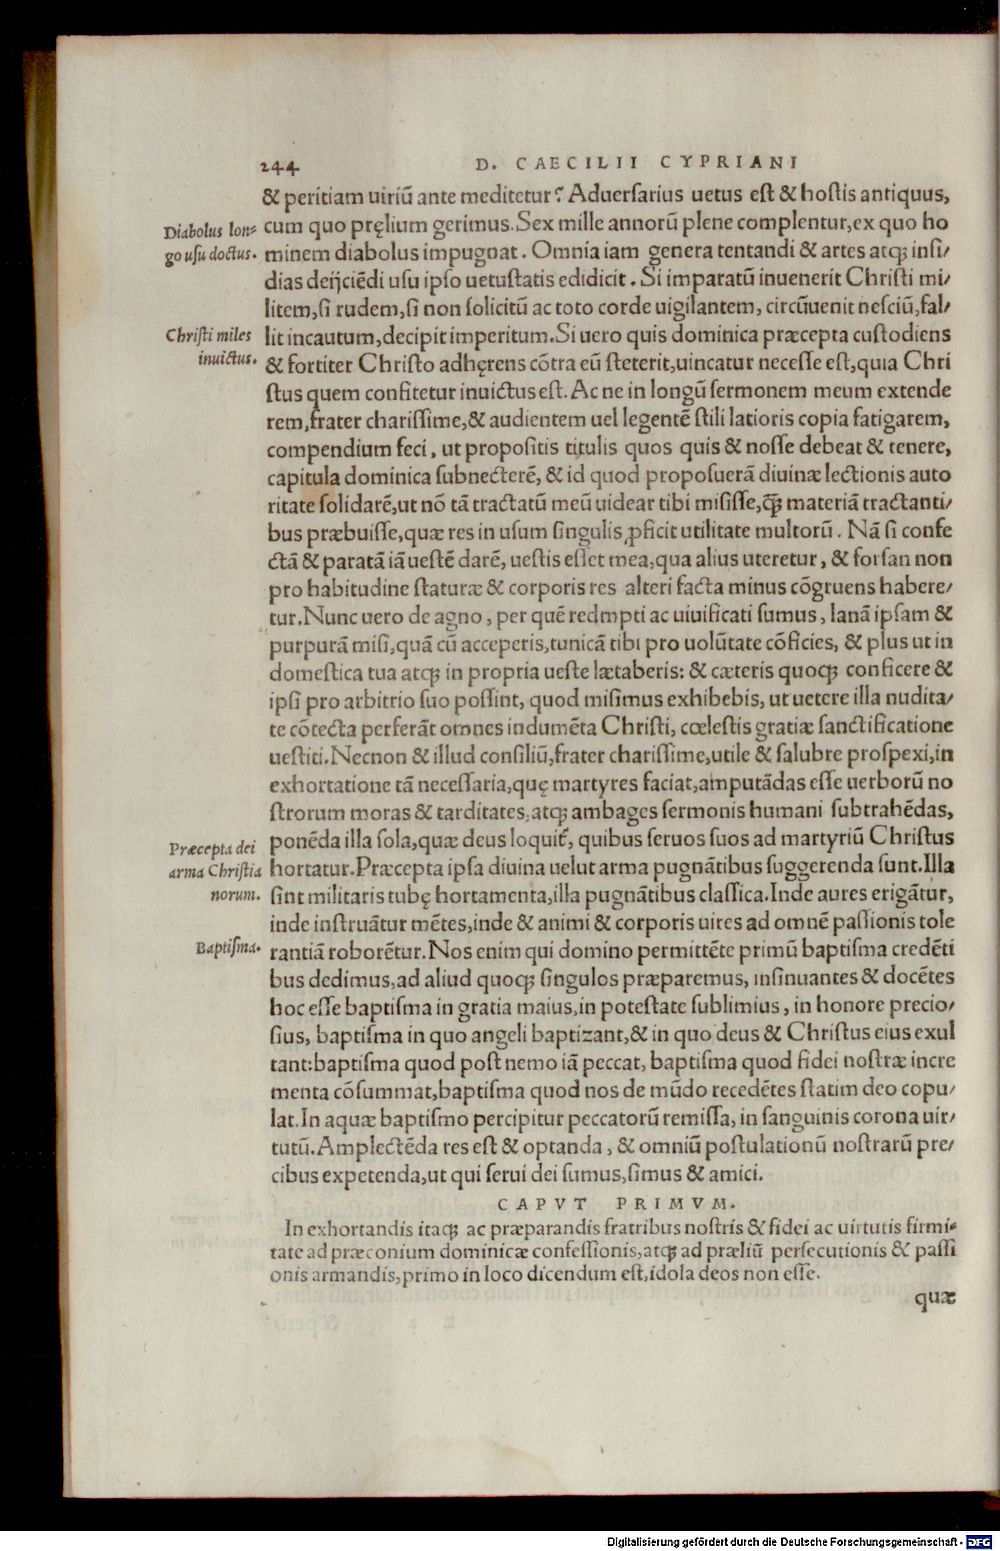 244
D. CAECILII CYPRIANI
& peritiam uiriũ ante meditetur? Aduersarius uetus est & hostis antiquus,
Diabolus lon-
go usu doctus.
cum quo pręlium gerimus. Sex mille annorũ plene complentur, ex quo ho
minem diabolus impugnat. Omnia iam genera tentandi & artes atq; insi/
dias deijciẽdi usu ipso uetustatis edidicit. Si imparatũ inuenerit Christi mi/
litem, si rudem, si non solicitũ ac toto corde uigilantem, circũuenit nesciũ, fal/
Christi miles
inuictus.
lit incautum, decipit imperitum. Si uero quis dominica præcepta custodiens
& fortiter Christo adhęrens cõtra eũ steterit, uincatur necesse est, quia Chri
stus quem confitetur inuictus est. Ac ne in longũ sermonem meum extende
rem, frater charissime, & audientem uel legentẽ stili latioris copia fatigarem,
compendium feci, ut propositis titulis quos quis & nosse debeat & tenere,
capitula dominica subnecterẽ, & id quod proposuerã diuinæ lectionis auto
ritate solidarẽ, ut nõ tã tractatũ meũ uidear tibi misisse, q̃ materiã tractanti/
bus præbuisse, quæ res in usum singulis ꝓficit utilitate multorũ. Nã si confe
ctã & paratã iã uestẽ darẽ, uestis esset mea, qua alius uteretur, & forsan non
pro habitudine staturæ & corporis res alteri facta minus cõgruens habere/
tur. Nunc uero de agno, per quẽ redmpti ac uiuificati sumus, lanã ipsam &
purpurã misi, quã cũ acceperis, tunicã tibi pro uolũtate cõficies, & plus ut in
domestica tua atq; in propria ueste lætaberis: & cæteris quoq; conficere &
ipsi pro arbitrio suo possint, quod misimus exhibebis, ut uetere illa nudita/
te cõtecta perferãt omnes indumẽta Christi, cœlestis gratiæ sanctificatione
uestiti. Necnon & illud consiliũ, frater charissime, utile & salubre prospexi, in
exhortatione tã necessaria, quę martyres faciat, amputãdas esse uerborũ no
strorum moras & tarditates, atq; ambages sermonis humani subtrahẽdas,
Præcepta dei
arma Christia
norum.
ponẽda illa sola, quæ deus loquit᷑, quibus seruos suos ad martyriũ Christus
hortatur. Præcepta ipsa diuina uelut arma pugnãtibus suggerenda sunt. Illa
sint militaris tubę hortamenta, illa pugnãtibus classica. Inde aures erigãtur,
inde instruãtur mẽtes, inde & animi & corporis uires ad omnẽ passionis tole
Baptisma.
rantiã roborẽtur. Nos enim qui domino permittẽte primũ baptisma credẽti
bus dedimus, ad aliud quoq; singulos præparemus, insinuantes & docẽtes
hoc esse baptisma in gratia maius, in potestate sublimius, in honore precio/
sius, baptisma in quo angeli baptizant, & in quo deus & Christus eius exul
tant: baptisma quod post nemo iã peccat, baptisma quod fidei nostræ incre
menta cõsummat, baptisma quod nos de mũdo recedẽtes statim deo copu/
lat. In aquæ baptismo percipitur peccatorũ remissa, in sanguinis corona uir/
tutũ. Amplectẽda res est & optanda, & omniũ postulationũ nostrarũ pre/
cibus expetenda, ut qui serui dei sumus, simus & amici.
CAPVT PRIMVM.
In exhortandis itaq; ac præparandis fratribus nostris & fidei ac uirtutis firmi-
tate ad præconium dominicæ confessionis, atq; ad præliũ persecutionis & passi
onis armandis, primo in loco dicendum est, idola deos non esse.
quæ
Digitalisierung gefördert durch die Deutsche Forschungsgemeinschaft - DFG